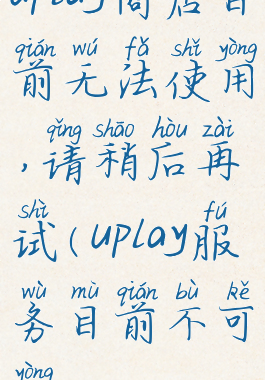 uplay商店目
qián wú fǎ shǐ yòng
前无法使用
qǐng shāo hòu zài
,请稍后再
shì fú
试(uplay服
wù mù qián bù kě
务目前不可
yòng